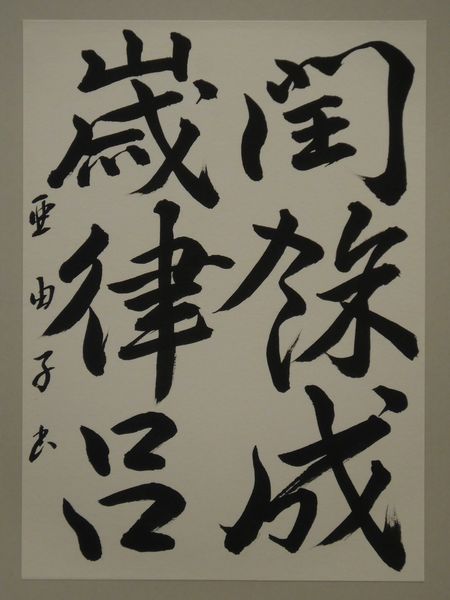 閏餘成
歳律呂
亜由子書